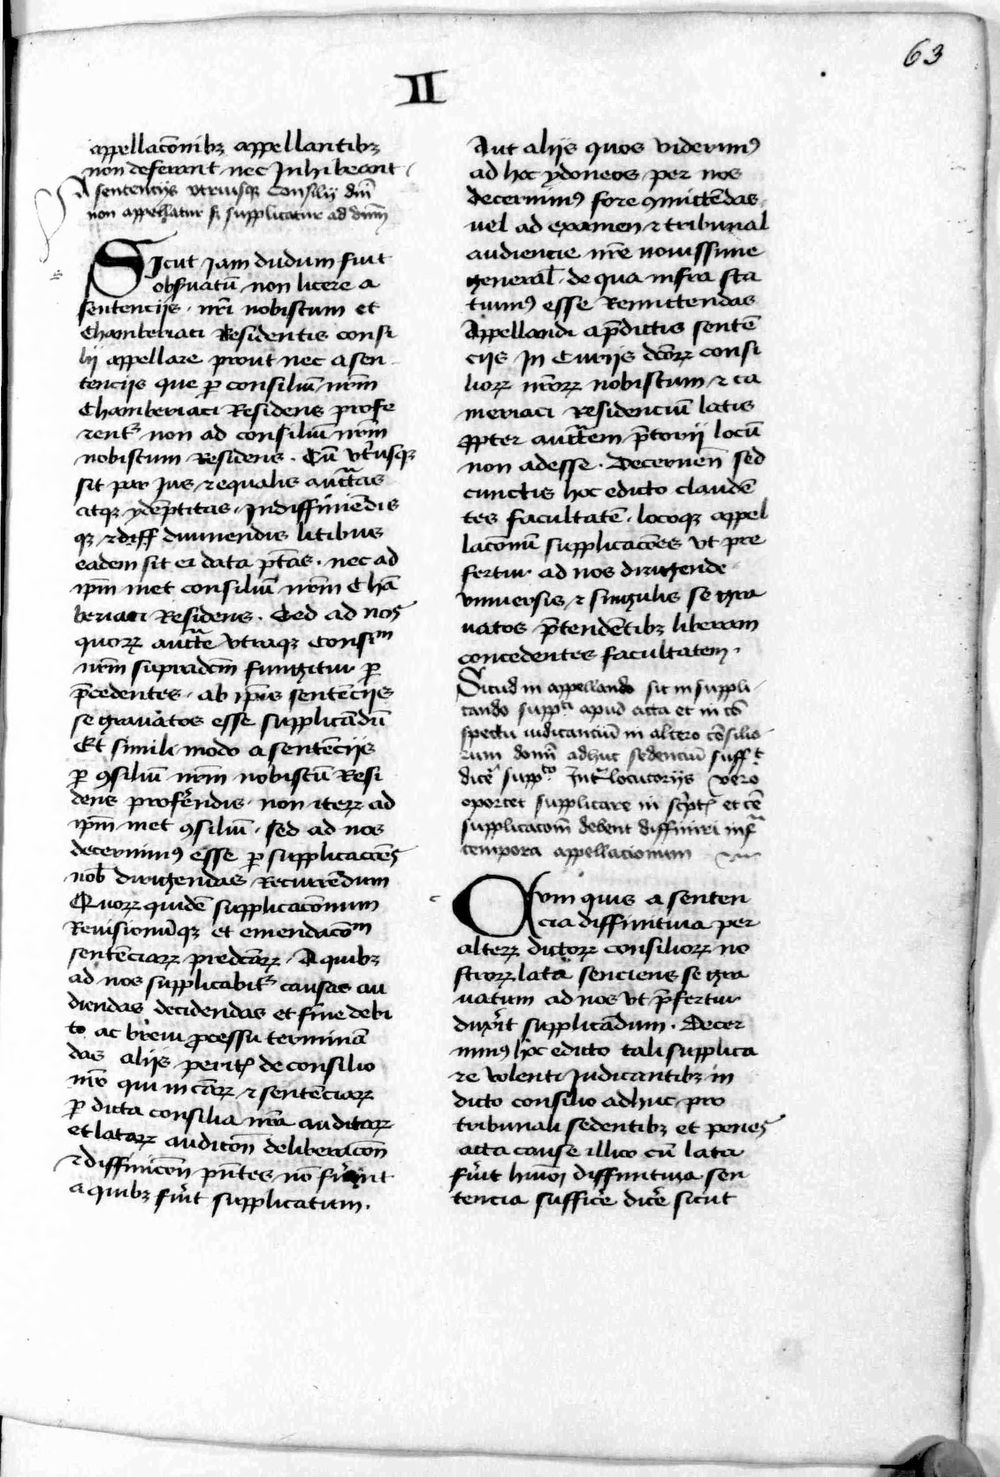 63
II
appellaco̅nibꝫ appellantibꝫ
non deferant nec Inhibeant
A sentencijs vtriusqꝫ Consilij dni̅
non appellatur sꝫ supplicatur ad dnm̅
Sicut Jam dudum fuit
obs̓uatu̅ non licere a
sentencijs nr̅i nobiscum et
Chamberiaci Residentis consi
lij appellare prout nec a sen
tencijs que ꝑ consiliu̅ nr̅m
Chamberiaci Residens profe
rent᷒ non ad consiliu̅ nr̅m
nobiscum Residens. Cu̅ vt̓usqꝫ
sit par Jus ⁊ equalis auct̅as
atqꝫ yde̅ptitas Indiffinie̅dis
qꝫ ⁊ diff dirimendis litibus
eadem sit ei data pt̅as. nec ad
ip̅m met consiliu̅ nr̅m Cha̅
beriaci Residens. Sed ad nos
quoꝝ auct̅te vtraqꝫ Consi̅m
nr̅m supradc̅m fungitur ꝑ
p̅cedentes ab ip̅is sente̅cijs
se grauatos esse supplica̅du̅
Et simili modo a sente̅cijs
ꝑ ꝯsiliu̅ nr̅m nobiscu̅ Resi
dens profe̓ndis non iteꝝ ad
ip̅m met ꝯsiliu̅ sed ad nos
decernimꝰ esse ꝑ supplicac̅oes
nob̅ dirigendas Recurre̅dum
Quoꝝ quide̅ supplicaco̅num
Reuisionu̅qꝫ et emendaco̅m
sente̅ciaꝝ predc̅aꝝ A quibꝫ
ad nos supplicabit᷒ causas au
diendas decidendas et fine debi
to ac breui ꝓcessu termina̅
das alijs peritꝭ de consilio
nr̅o qui in ca̅ꝝ ⁊ sente̅ciaꝝ
ꝑ dicta consilia nr̅a auditaꝝ
et lataꝝ audico̅n deliberaco̅n
⁊ diffinico̅n pn̅tes no̅ fu̓int
a quibꝫ fu̓it supplicatum.
Aut alijs quos viderimꝰ
ad hoc ydoneos per nos
decernimꝰ fore ꝯmicte̅das
vel ad examen ⁊ tribunal
audiencie nr̅e nouissime
general̅ de qua infra sta
tuimꝰ esse Remittendas
Appellandi a p̅dictis sente̅
cijs In Curijs dc̅oꝝ consi
lioꝝ nr̅oꝝ nobiscum ⁊ ca
meriaci residenciu̅ latis
ꝓpter auct̅tem p̅torij locu̅
non adesse. Decernen̅ sed
cunctis hoc edicto claude̅
tes facultate̅. locoqꝫ appel
laco̅num supplicaco̅es vt pre
fertur ad nos dirigende
vniuersis ⁊ singulis se gra
uatos p̅tende̅tibꝫ liberam
concedentes facultatem.
Sicud in appellando sic in suppli
cando supp̅ri apud acta et in co̅
spectu iudicanciu̅ in altero co̅silio
rum domi̅ adhuc sedenciu̅ suff᷒t
dice̓ suppco. Int̓locutorijs vero
oportet supplicare in sc̓ptꝭ et ce̅
supplicaco̅m debent diffiniri infra
tempora appellacionum
Qvm quis a senten
cia diffinitiua per
alteꝝ dictoꝝ consilioꝝ no
stroꝝ lata senciens se gra
uatum ad nos vt p̅fertur
duxe̓it supplica̅dum. Decer
nimꝰ hoc edicto tali supplica
re volenti Judicantibꝫ in
dicto consilio adhuc pro
tribunali sedentibꝫ et penes
acta cause illico cu̅ lata
fu̓it huiꝰmoi diffinitiua sen
tencia suffice̓ dice̓ sicut